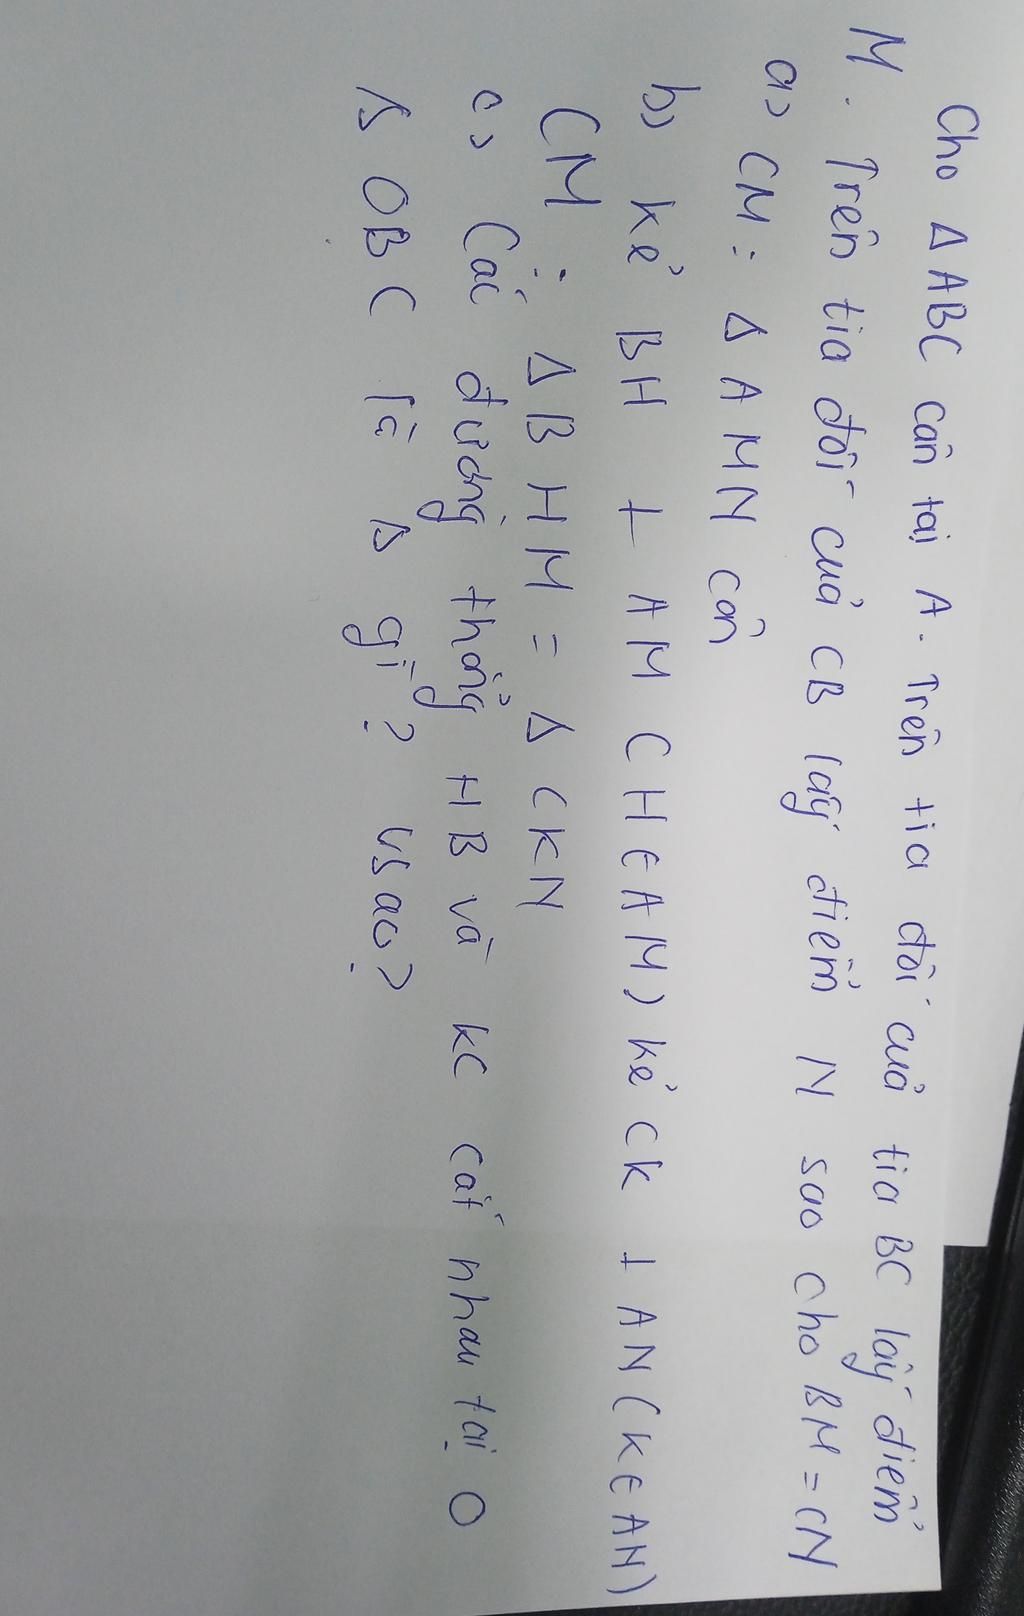 Cho Δ ABC cân tại A. Trên tia đối của tia BC lấy điểm
M. Trên tia đối của CB lấy điểm N sao cho BM = CN
a) CM: Δ AMN cân
b) kẻ BH ⊥ AM (H ∈ AM) kẻ CK ⊥ AN (K ∈ AN)
CM: Δ BHM = Δ CKN
c) Các đường thẳng HB và KC cắt nhau tại O
Δ OBC là Δ gì? Vsao?